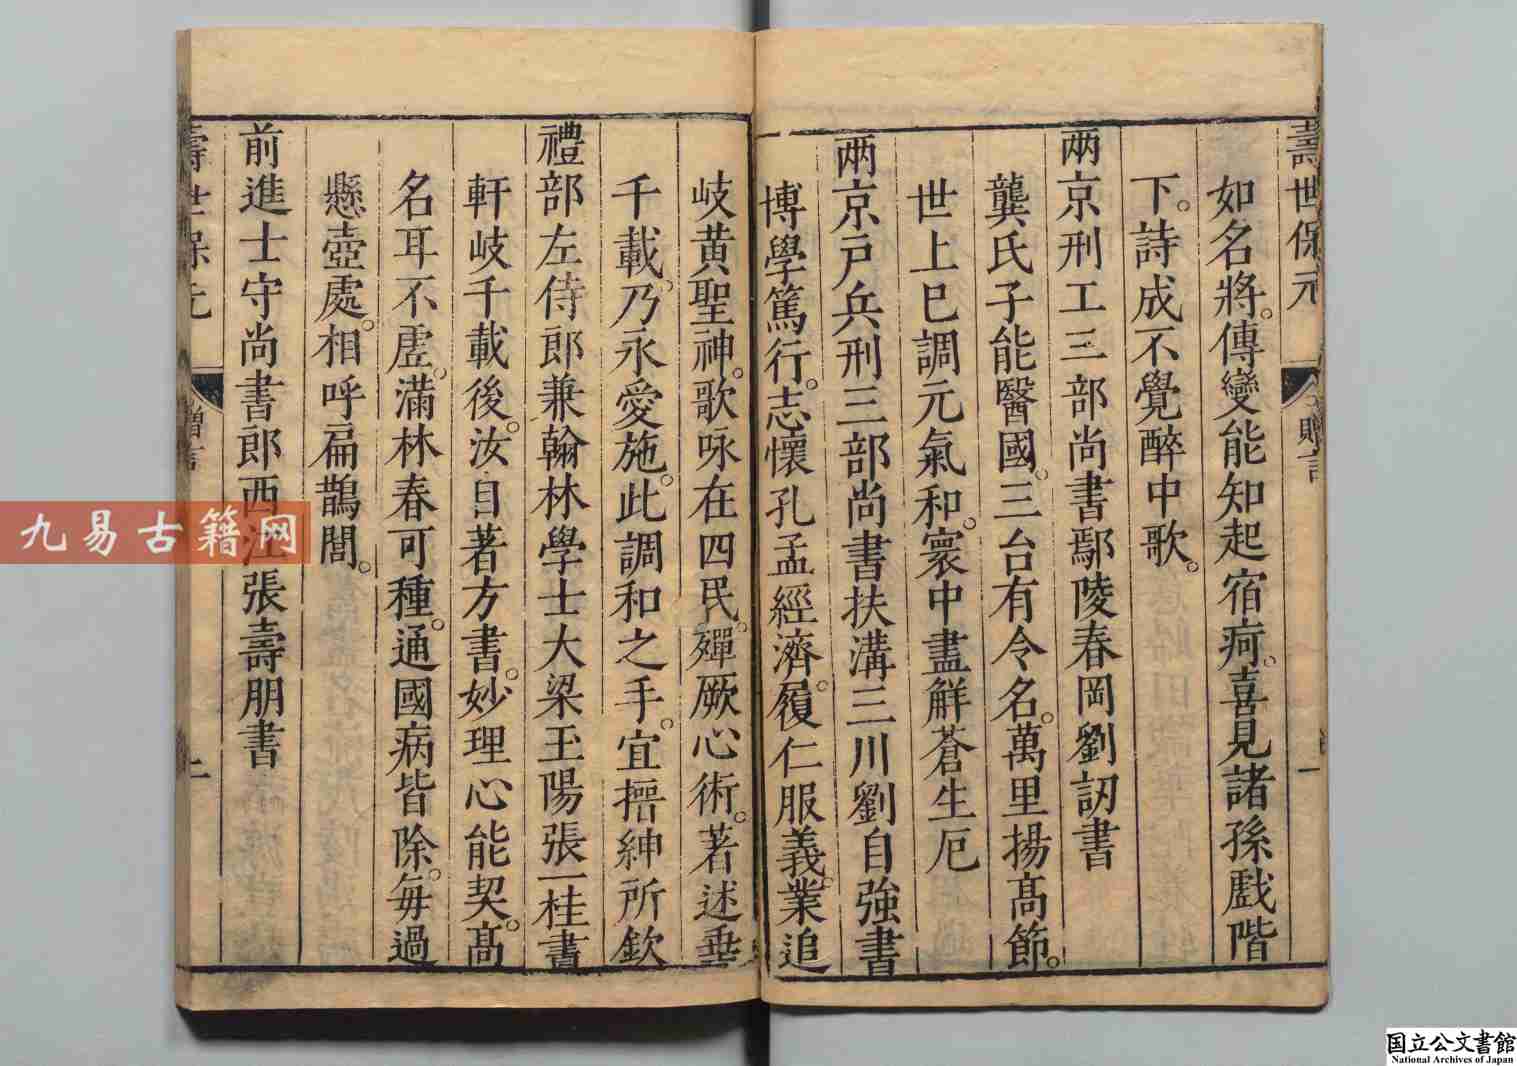 壽世保元
贈言
一
如名將。傳變能知起宿疴。喜見諸孫戲階
下。詩成不覺醉中歌。
兩京刑工三部尚書鄢陵春岡劉訒書
龔氏子能醫國。三台有令名。萬里揚高節。
世上已調元氣和。寰中盡解蒼生厄
兩京戶兵刑三部尚書扶溝三川劉自強書
博學篤行。志懷孔孟經濟。履仁服義。業追
岐黃聖神。歌咏在四民。殫厥心術。著述垂
千載。乃永愛施。此調和之手。宜搢紳所欽
禮部左侍郎兼翰林學士大梁玉陽張一桂書
軒岐千載後。汝自著方書。妙理心能契。高
名耳不虛。滿林春可種。通國病皆除。每過
懸壺處。相呼扁鵲閭。
前進士守尚書郎西江張壽朋書
壽世保元
贈言
二
九易古籍网
国立公文書館
National Archives of Japan